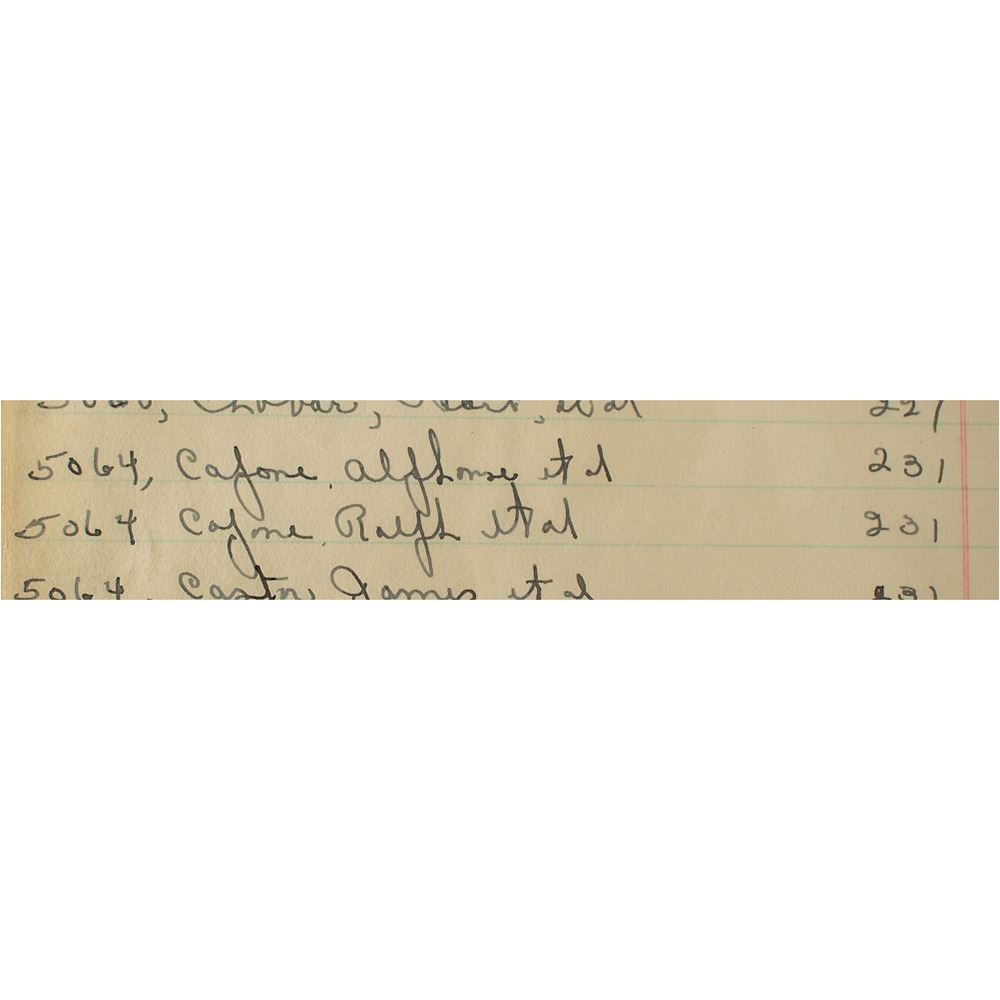 5064, Capone, Alphonse et al 231
5064 Capone, Ralph et al 231
5064, Castor, James et al 231